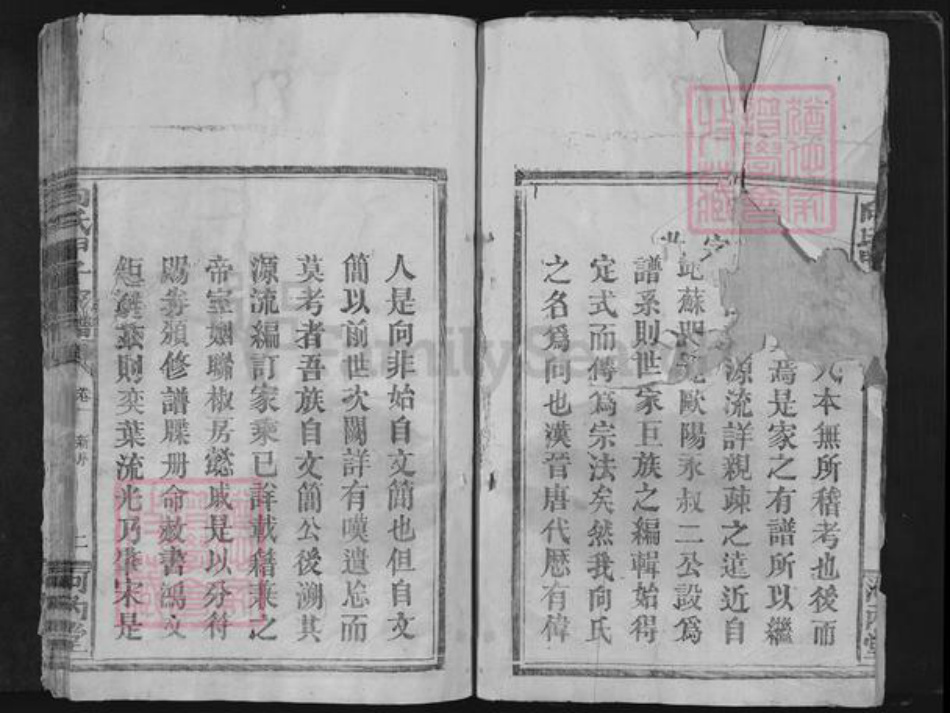 向氏
本無所稽考也後而
焉是家之有譜所以繼
源流詳親疎之遠近自
蘇明允歐陽永叔二公設爲
譜系則世家巨族之編輯始得
定式而傳爲宗法矣然我向氏
之名爲向也漢晉唐代歷有偉
河內堂
人是向非始自文簡也但自文
簡以前世次闕詳有嘆遺忘而
莫考者吾族自文簡公後溯其
源流編訂家乘已詳載藉乘之
帝室姻聯椒房懿戚是以分符
賜券頒修譜牒册命赦書鴻文
鉅選茲則奕葉流光乃隼宋是
向氏甲子家譜
卷一
新序
二
河內堂
FamilySearch